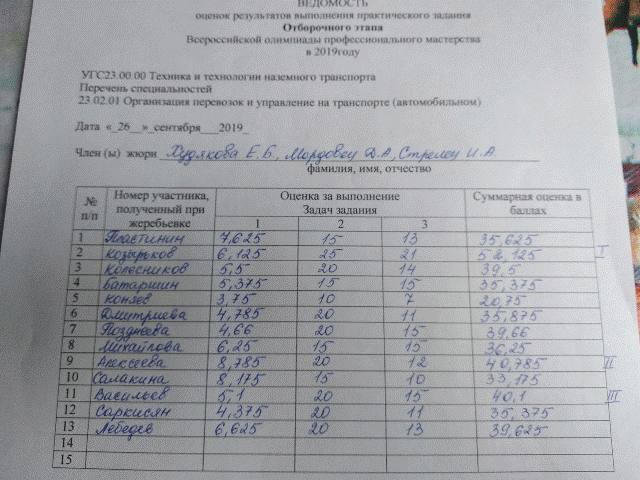 ВЕДОМОСТЬ
оценок результатов выполнения практического задания
Отборочного этапа
Всероссийской олимпиады профессионального мастерства
в 2019году
УГС23.00.00 Техника и технологии наземного транспорта
Перечень специальностей
23.02.01 Организация перевозок и управление на транспорте (автомобильном)
Дата «_26__»_сентября___2019_
Член (ы) жюри Худякова Е.Б., Мордовец Д.А., Стрелец И.А.
фамилия, имя, отчество
№ п/п Номер участника, полученный при жеребьевке Оценка за выполнение Задач задания Суммарная оценка в баллах
1 2 3
1 Пластинин 7,625 15 13 35,625
2 Козырьков 6,125 25 21 52,125 I
3 Колесников 5,5 20 14 39,5
4 Батаршин 5,375 15 15 35,375
5 Коняев 3,75 10 7 20,75
6 Дмитриева 4,785 20 11 35,875
7 Позднеева 4,66 20 15 39,66
8 Михайлова 6,25 15 15 36,25
9 Алексеева 8,785 20 12 40,785 II
10 Салакина 8,175 15 10 33,175
11 Васильев 5,1 20 15 40,1 III
12 Саркисян 4,375 20 11 35,375
13 Лебедев 6,625 20 13 39,625
14
15